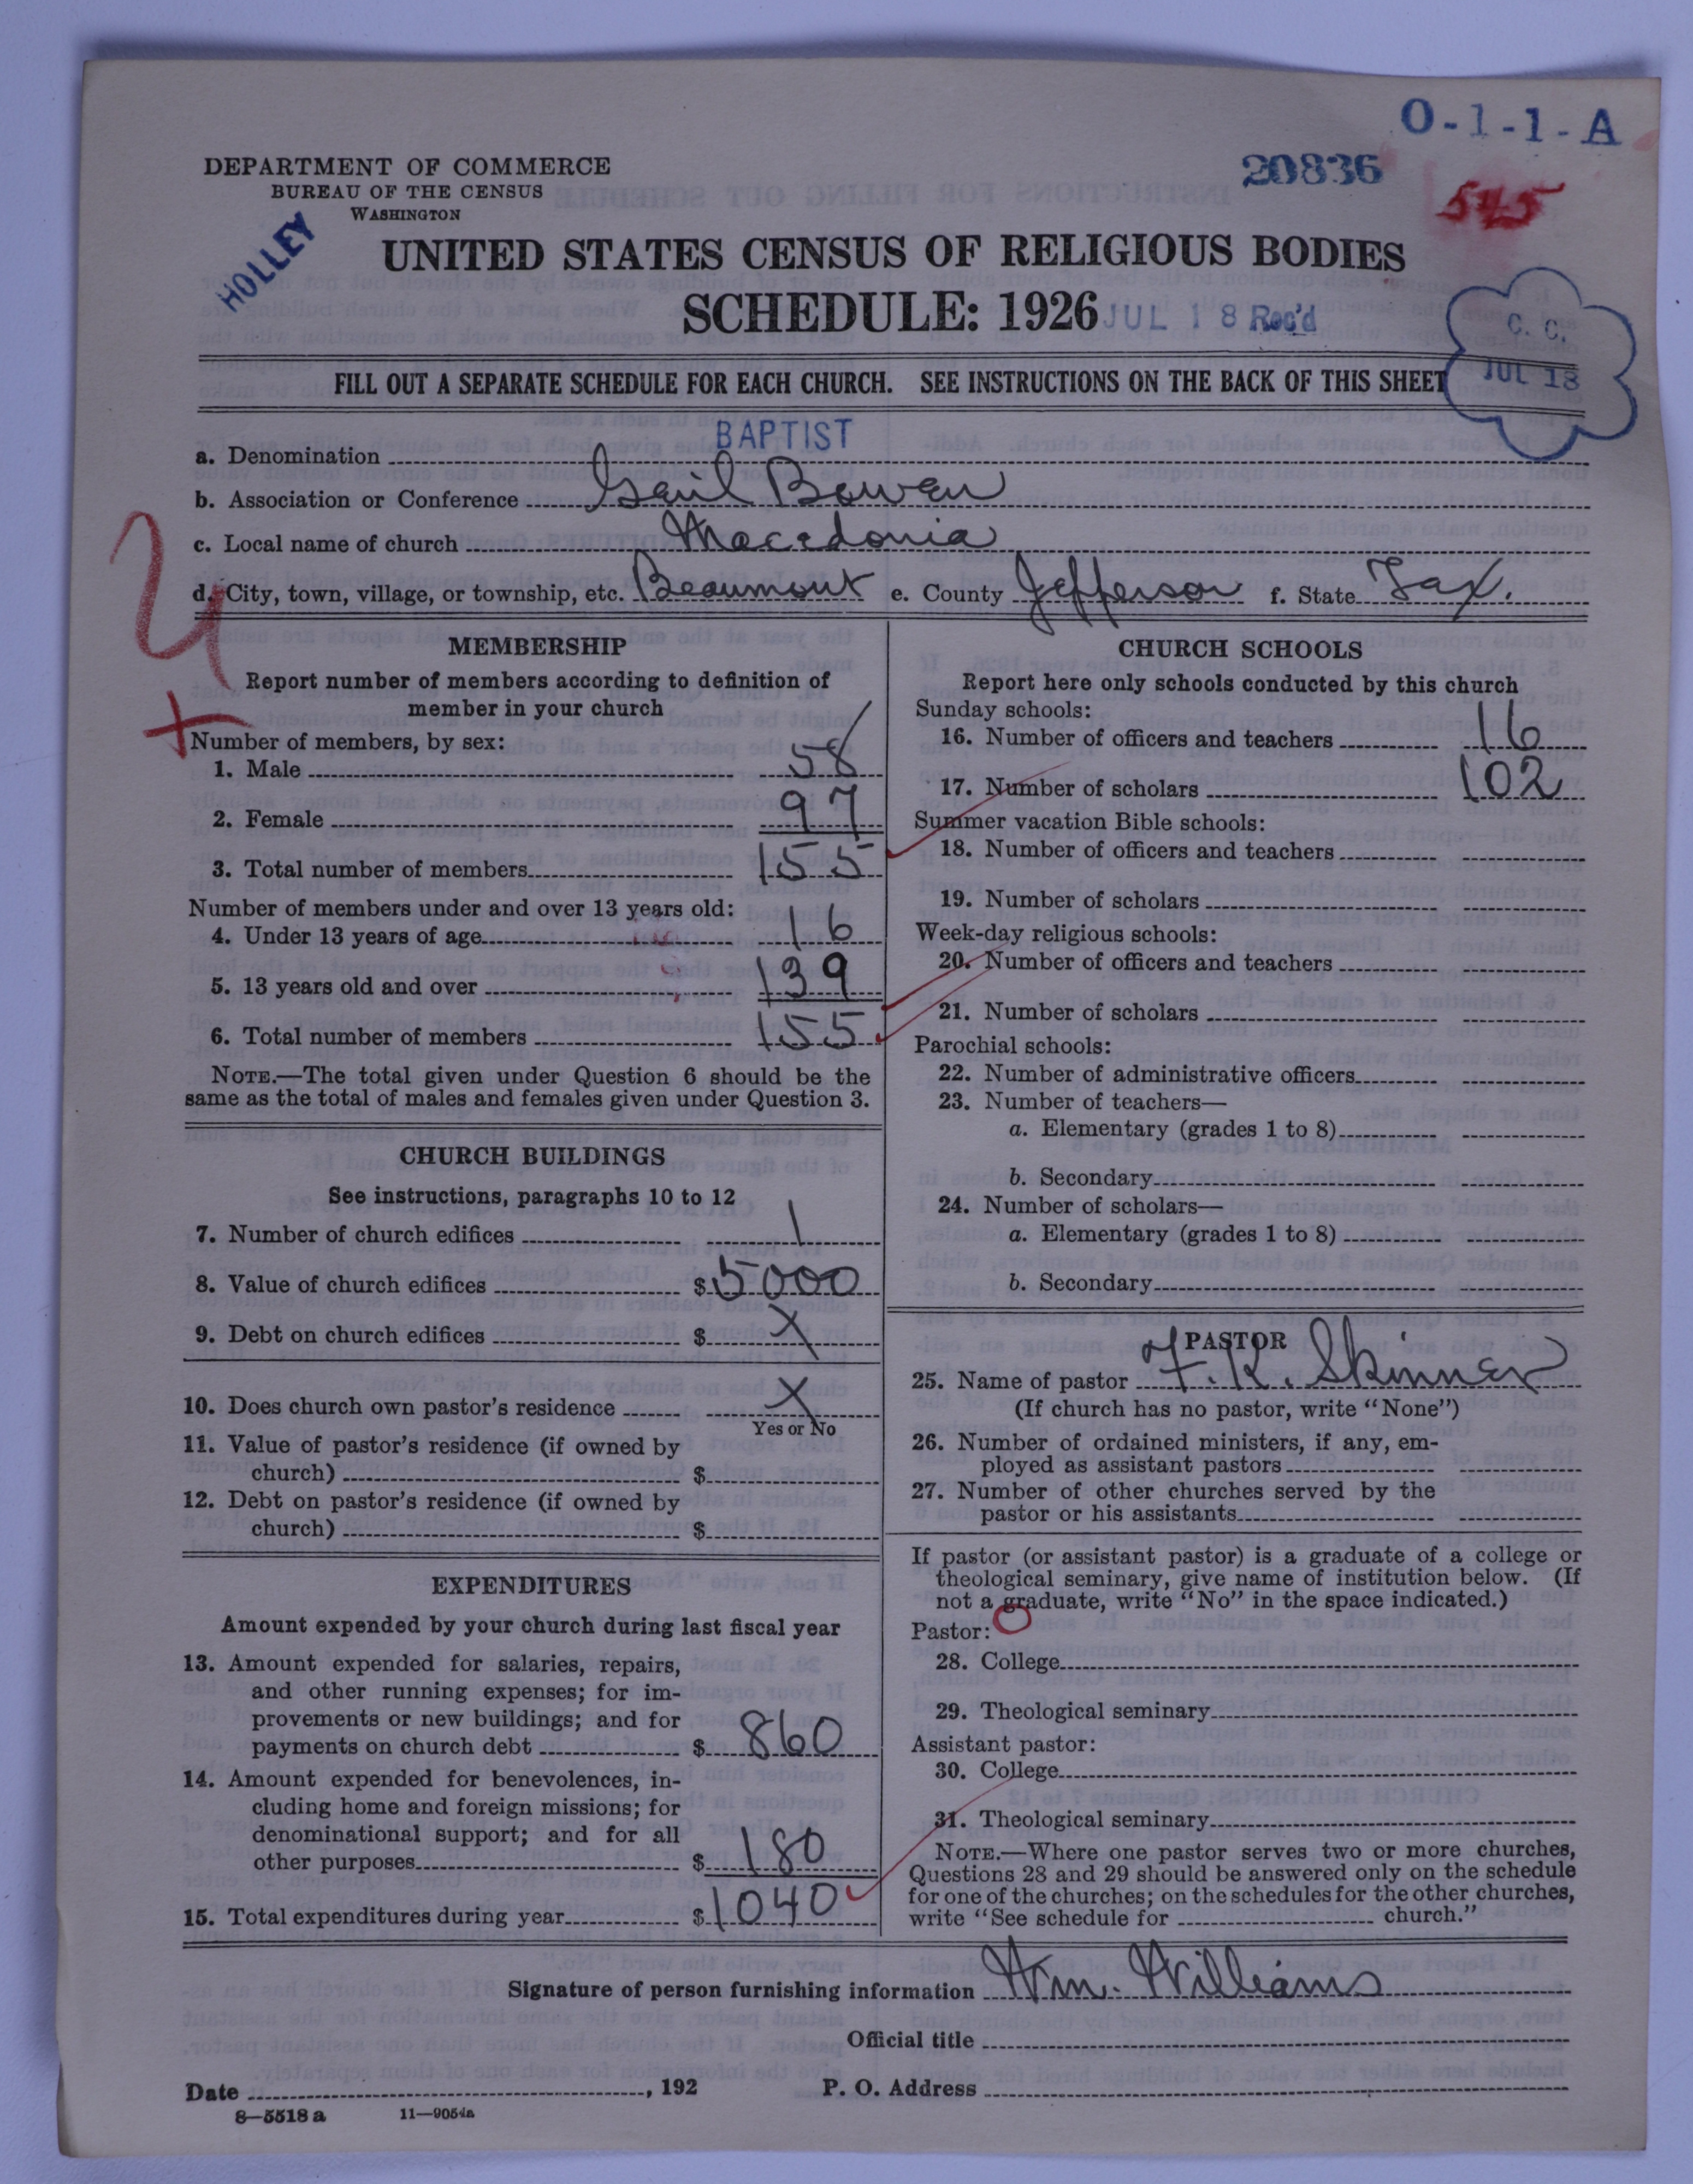 O-1-1-A
20836
515
DEPARTMENT OF COMMERCE
BUREAU OF THE CENSUS
WASHINGTON
HOLLEY
UNITED STATES CENSUS OF RELIGIOUS BODIES
SCHEDULE: 1926 JUL 18 Rec'd
C. C.
JUL 18
FILL OUT A SEPARATE SCHEDULE FOR EACH CHURCH. SEE INSTRUCTIONS ON THE BACK OF THIS SHEET
a. Denomination BAPTIST
b. Association or Conference Gail Bowen
c. Local name of church Macedonia
d. City, town, village, or township, etc. Beaumont e. County Jefferson f. State Tax.
MEMBERSHIP
Report number of members according to definition of
member in your church
Number of members, by sex:
1. Male 58
2. Female 97
3. Total number of members 155
Number of members under and over 13 years old:
4. Under 13 years of age 16
5. 13 years old and over 139
6. Total number of members 155
NOTE.—The total given under Question 6 should be the
same as the total of males and females given under Question 3.
CHURCH BUILDINGS
See instructions, paragraphs 10 to 12
7. Number of church edifices 1
8. Value of church edifices $5000
9. Debt on church edifices $ X
10. Does church own pastor's residence X
Yes or No
11. Value of pastor's residence (if owned by
church) $
12. Debt on pastor's residence (if owned by
church) $
EXPENDITURES
Amount expended by your church during last fiscal year
13. Amount expended for salaries, repairs,
and other running expenses; for im-
provements or new buildings; and for
payments on church debt $ 860
14. Amount expended for benevolences, in-
cluding home and foreign missions; for
denominational support; and for all
other purposes $ 180
15. Total expenditures during year $1040
CHURCH SCHOOLS
Report here only schools conducted by this church
Sunday schools:
16. Number of officers and teachers 16
17. Number of scholars 102
Summer vacation Bible schools:
18. Number of officers and teachers
19. Number of scholars
Week-day religious schools:
20. Number of officers and teachers
21. Number of scholars
Parochial schools:
22. Number of administrative officers
23. Number of teachers—
a. Elementary (grades 1 to 8)
b. Secondary
24. Number of scholars—
a. Elementary (grades 1 to 8)
b. Secondary
PASTOR
25. Name of pastor F. K. Skinner
(If church has no pastor, write "None")
26. Number of ordained ministers, if any, em-
ployed as assistant pastors
27. Number of other churches served by the
pastor or his assistants
If pastor (or assistant pastor) is a graduate of a college or
theological seminary, give name of institution below. (If
not a graduate, write "No" in the space indicated.)
Pastor:
28. College
29. Theological seminary
Assistant pastor:
30. College
31. Theological seminary
NOTE.—Where one pastor serves two or more churches,
Questions 28 and 29 should be answered only on the schedule
for one of the churches; on the schedules for the other churches,
write "See schedule for church."
Signature of person furnishing information Wm. Williams
Official title
Date , 192 P. O. Address
8—5518 a 11—9054a